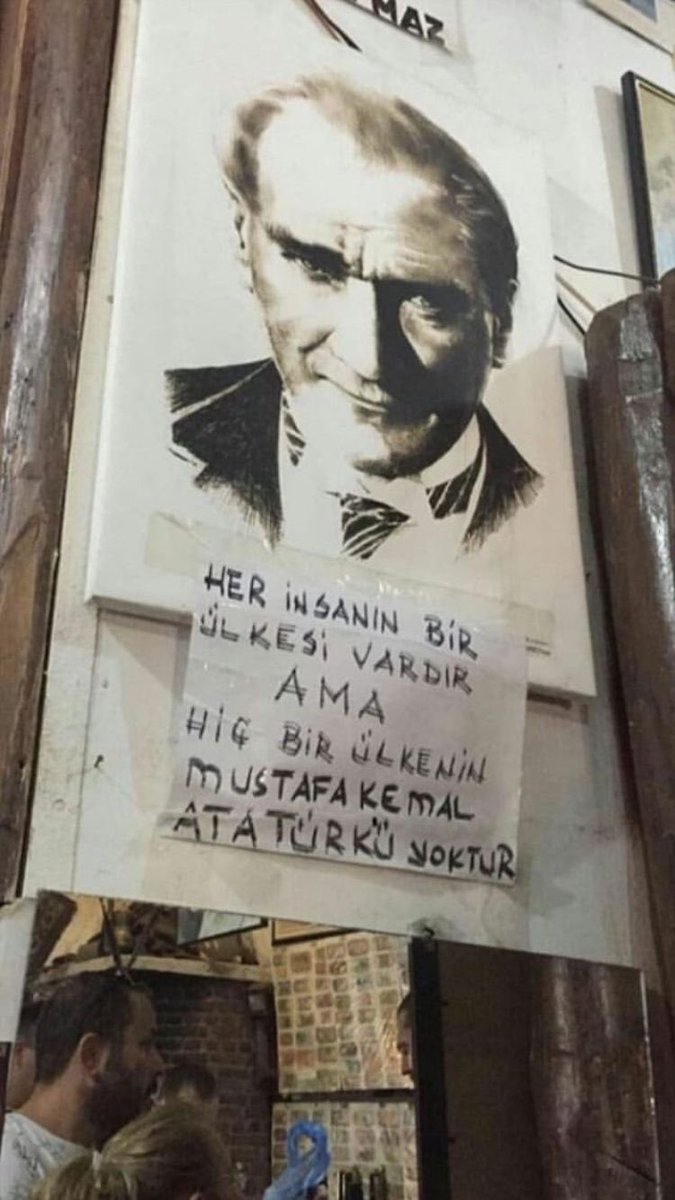 MAZ
HER İNSANIN BİR
ÜLKESİ VARDIR
AMA
HİÇ BİR ÜLKENİN
MUSTAFA KEMAL
ATATÜRKÜ YOKTUR